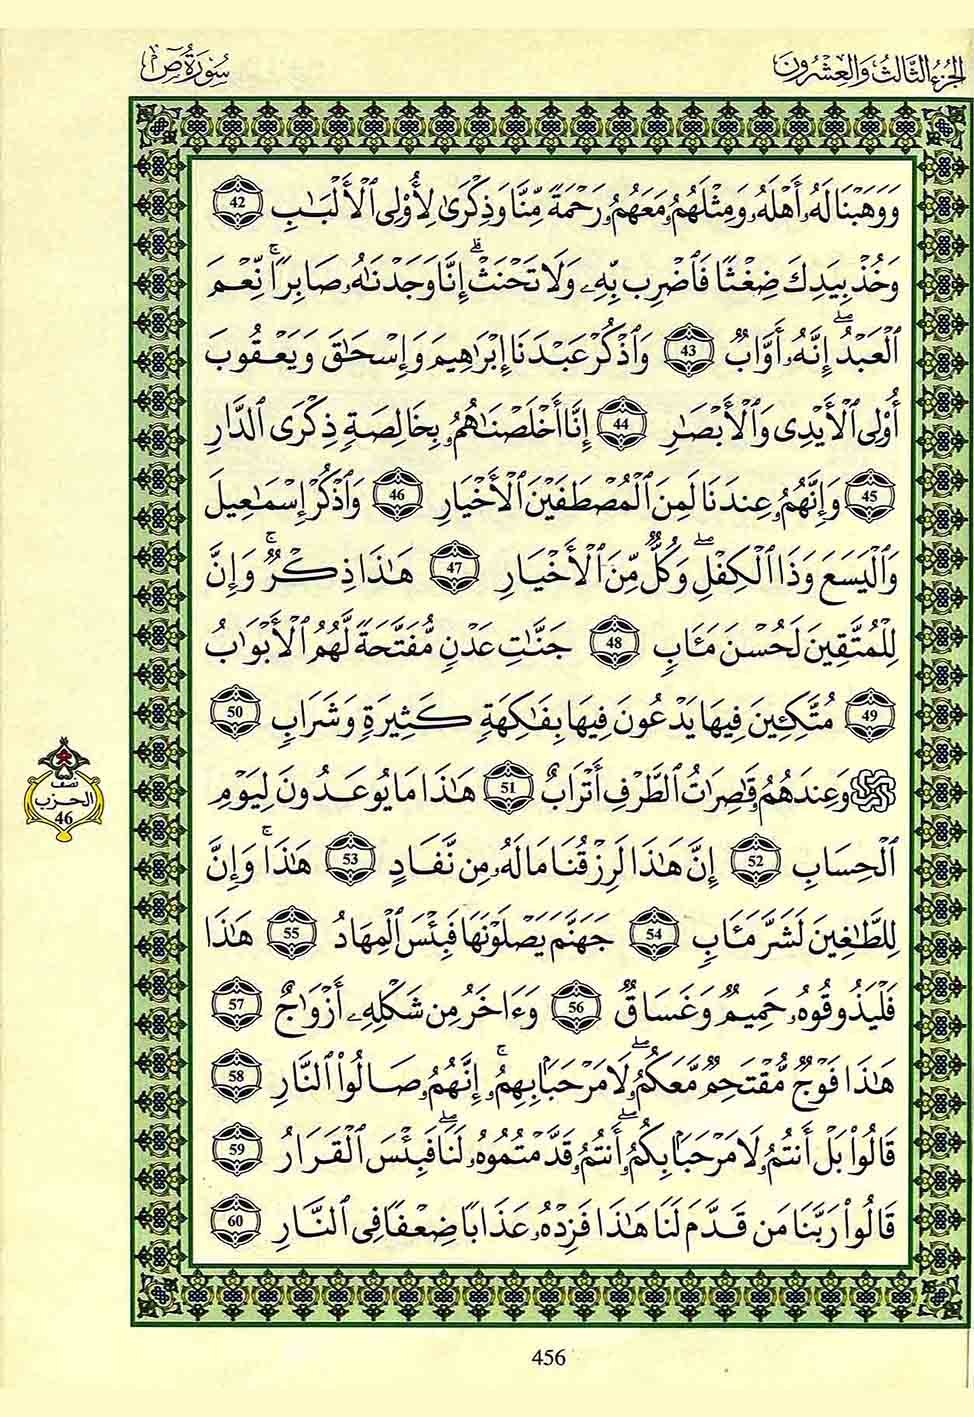 الجزء الثالث والعشرون
سورة ص
وَوَهَبْنَا لَهُۥٓ أَهْلَهُۥ وَمِثْلَهُمُۥ مَعَهُمُۥ رَحْمَةً مِّنَّا وَذِكْرَىٰ لِأُوْلِى ٱلْأَلْبَٰبِ 42
وَخُذْ بِيَدِكَ ضِغْثًا فَٱضْرِب بِّهِۦ وَلَا تَحْنَثْ ۗ إِنَّا وَجَدْنَٰهُۥ صَابِرًا ۚ نِّعْمَ
ٱلْعَبْدُ ۖ إِنَّهُۥٓ أَوَّابٌ 43 وَٱذْكُرْ عَبْدَنَا إِبْرَاهِيمَ وَإِسْحَٰقَ وَيَعْقُوبَ
أُوْلِى ٱلْأَيْدِى وَٱلْأَبْصَٰرِ 44 إِنَّا أَخْلَصْنَٰهُمُۥ بِخَالِصَةٍ ذِكْرَى ٱلدَّارِ
45 وَإِنَّهُمُۥ عِندَنَا لَمِنَ ٱلْمُصْطَفَيْنَ ٱلْأَخْيَارِ 46 وَٱذْكُرْ إِسْمَٰعِيلَ
وَٱلْيَسَعَ وَذَا ٱلْكِفْلِ ۖ وَكُلٌّ مِّنَ ٱلْأَخْيَارِ 47 هَٰذَا ذِكْرٌ ۚ وَإِنَّ
لِلْمُتَّقِينَ لَحُسْنَ مَـَٔابٍ 48 جَنَّٰتِ عَدْنٍ مُّفَتَّحَةً لَّهُمُ ٱلْأَبْوَٰبُ
49 مُتَّكِـِٔينَ فِيهَا يَدْعُونَ فِيهَا بِفَٰكِهَةٍ كَثِيرَةٍ وَشَرَابٍ 50
۞ وَعِندَهُمُۥ قَٰصِرَٰتُ ٱلطَّرْفِ أَتْرَابٌ 51 هَٰذَا مَا يُوعَدُونَ لِيَوْمِ
ٱلْحِسَابِ 52 إِنَّ هَٰذَا لَرِزْقُنَا مَا لَهُۥ مِن نَّفَادٍ 53 هَٰذَا ۚ وَإِنَّ
لِلطَّٰغِينَ لَشَرَّ مَـَٔابٍ 54 جَهَنَّمَ يَصْلَوْنَهَا فَبِئْسَ ٱلْمِهَادُ 55 هَٰذَا
فَلْيَذُوقُوهُۥ حَمِيمٌ وَغَسَاقٌ 56 وَءَاخَرُ مِن شَكْلِهِۦٓ أَزْوَٰجٌ 57
هَٰذَا فَوْجٌ مُّقْتَحِمٌ مَّعَكُمُۥ ۖ لَا مَرْحَبًۢا بِهِمُۥٓ ۚ إِنَّهُمُۥ صَالُواْ ٱلنَّارِ 58
قَالُواْ بَلْ أَنتُمُۥ لَا مَرْحَبًۢا بِكُمُۥٓ ۖ أَنتُمُۥ قَدَّمْتُمُوهُۥ لَنَا ۖ فَبِئْسَ ٱلْقَرَارُ 59
قَالُواْ رَبَّنَا مَن قَدَّمَ لَنَا هَٰذَا فَزِدْهُۥ عَذَابًا ضِعْفًا فِى ٱلنَّارِ 60
نصف
الحزب
46
456